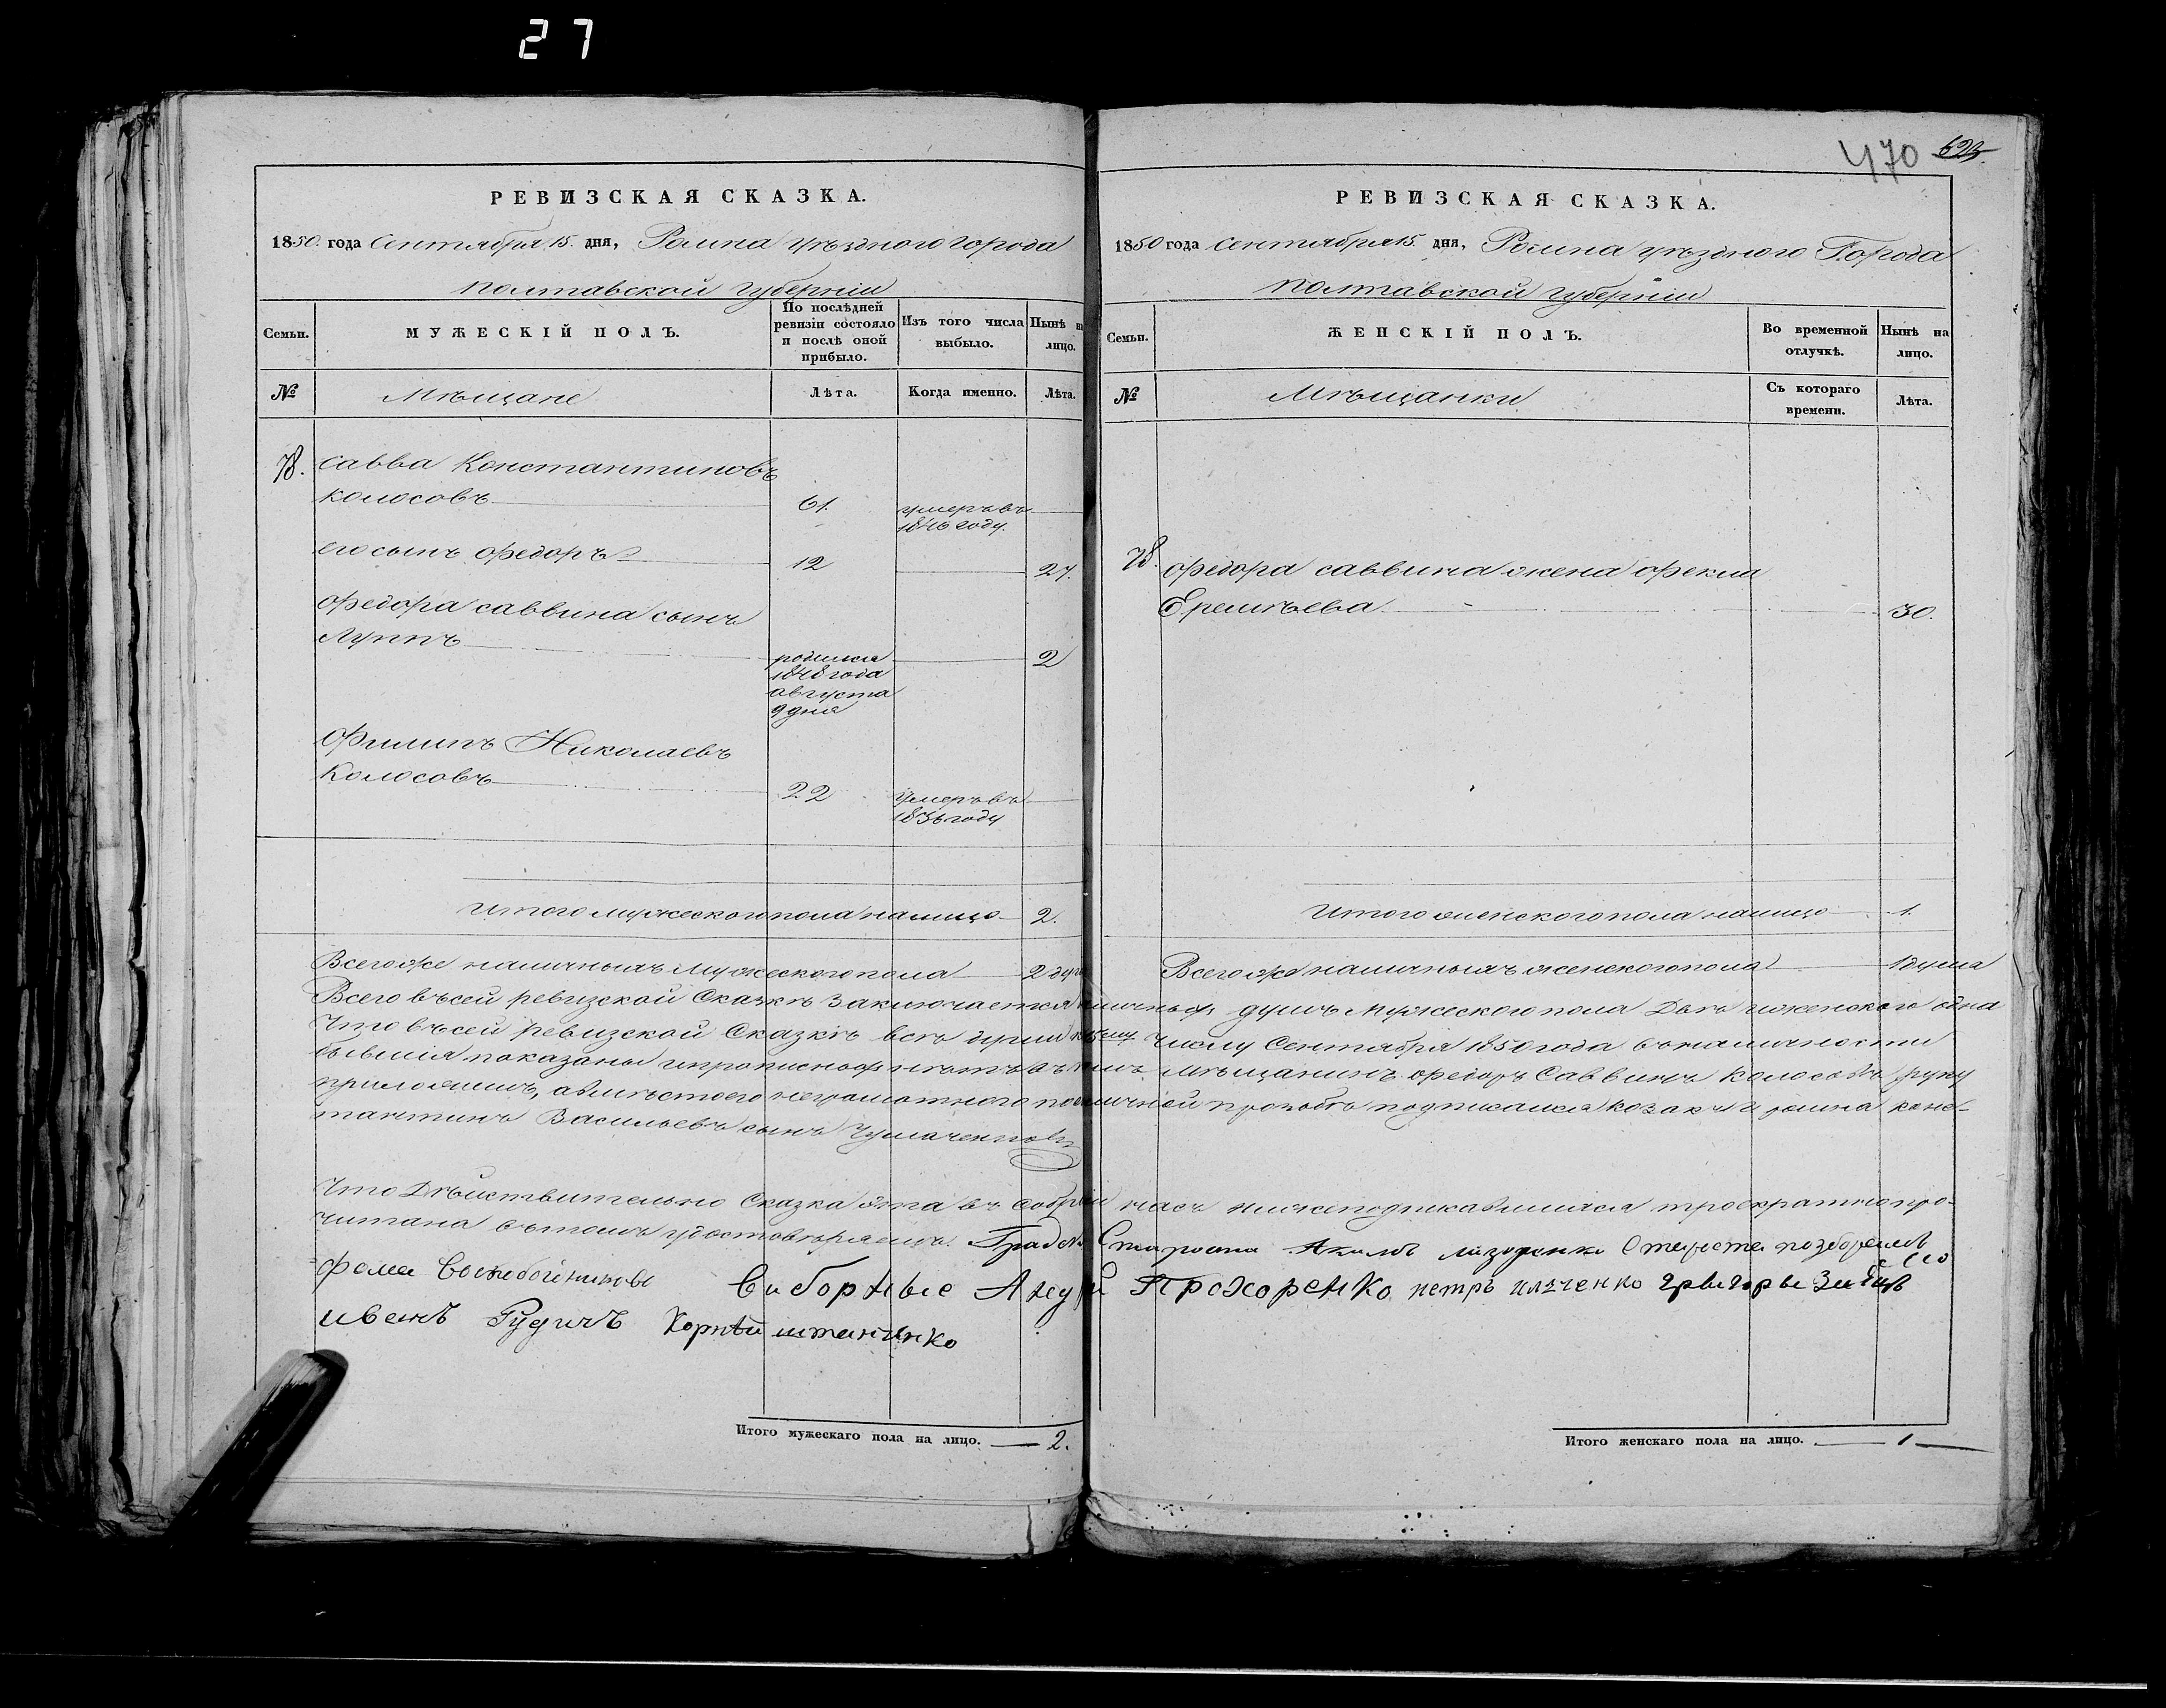 27
РЕВИЗСКАЯ СКАЗКА.
1850. года Сентября 15. дня, Ромна уѣзднаго города
Полтавской Губерніи
Семьи.
МУЖЕСКІЙ ПОЛЪ.
По послѣдней ревизіи состояло и послѣ оной прибыло.
Изъ того числа выбыло.
Нынѣ на лицо.
№
Мѣщане
Лѣта.
Когда именно.
Лѣта.
78. Савва Константиновъ
Колосовъ 61. умеръ въ
1846 году.
его сынъ Федоръ 12 27.
Федора Саввина сынъ
Луппъ родился 2
1848 года
августа
9 дня
Филипъ Николаевъ
Колосовъ 22 умеръ въ
1836 году
Итого мужескаго пола налицо 2.
Всего же наличныхъ Мужескаго пола 2 души
470 623
РЕВИЗСКАЯ СКАЗКА.
1850 года Сентября 15. дня, Ромна уѣзднаго Города
Полтавской Губерніи
Семьи.
ЖЕНСКІЙ ПОЛЪ.
Во временной отлучкѣ.
Нынѣ на лицо.
№
Мѣщанки
Съ котораго времени.
Лѣта.
78. Федора Саввина жена Фекла
Еремѣева 30.
Итого женскаго пола налицо 1.
Всего же наличныхъ женскаго пола 1 душа
Всего въ сей ревизской Сказкѣ заключается наличныхъ душъ Мужескаго пола Двѣ и женскаго одна
Что въ сей ревизской Сказкѣ всѣ души к числу Сентября 1850 года въ наличности
бывшія показаны и прописныхъ нѣтъ въ томъ Мѣщанинъ Федоръ Саввинъ Колосовъ руку
приложилъ, а вмѣсто его неграмотнаго по личной прозьбѣ подписался козакъ Ромна Конс-
тантинъ Васильевъ сынъ
Что Дѣйствительно Сказка эта въ собраніи насъ нижеподписавшихся троекратно про-
читана въ томъ удостовѣряемъ. Староста Староста
Фома
Виборные Прохоренко петръ Илченко
иванъ Рудичъ Корнѣй
Итого мужескаго пола на лицо. 2.
Итого женскаго пола на лицо. 1